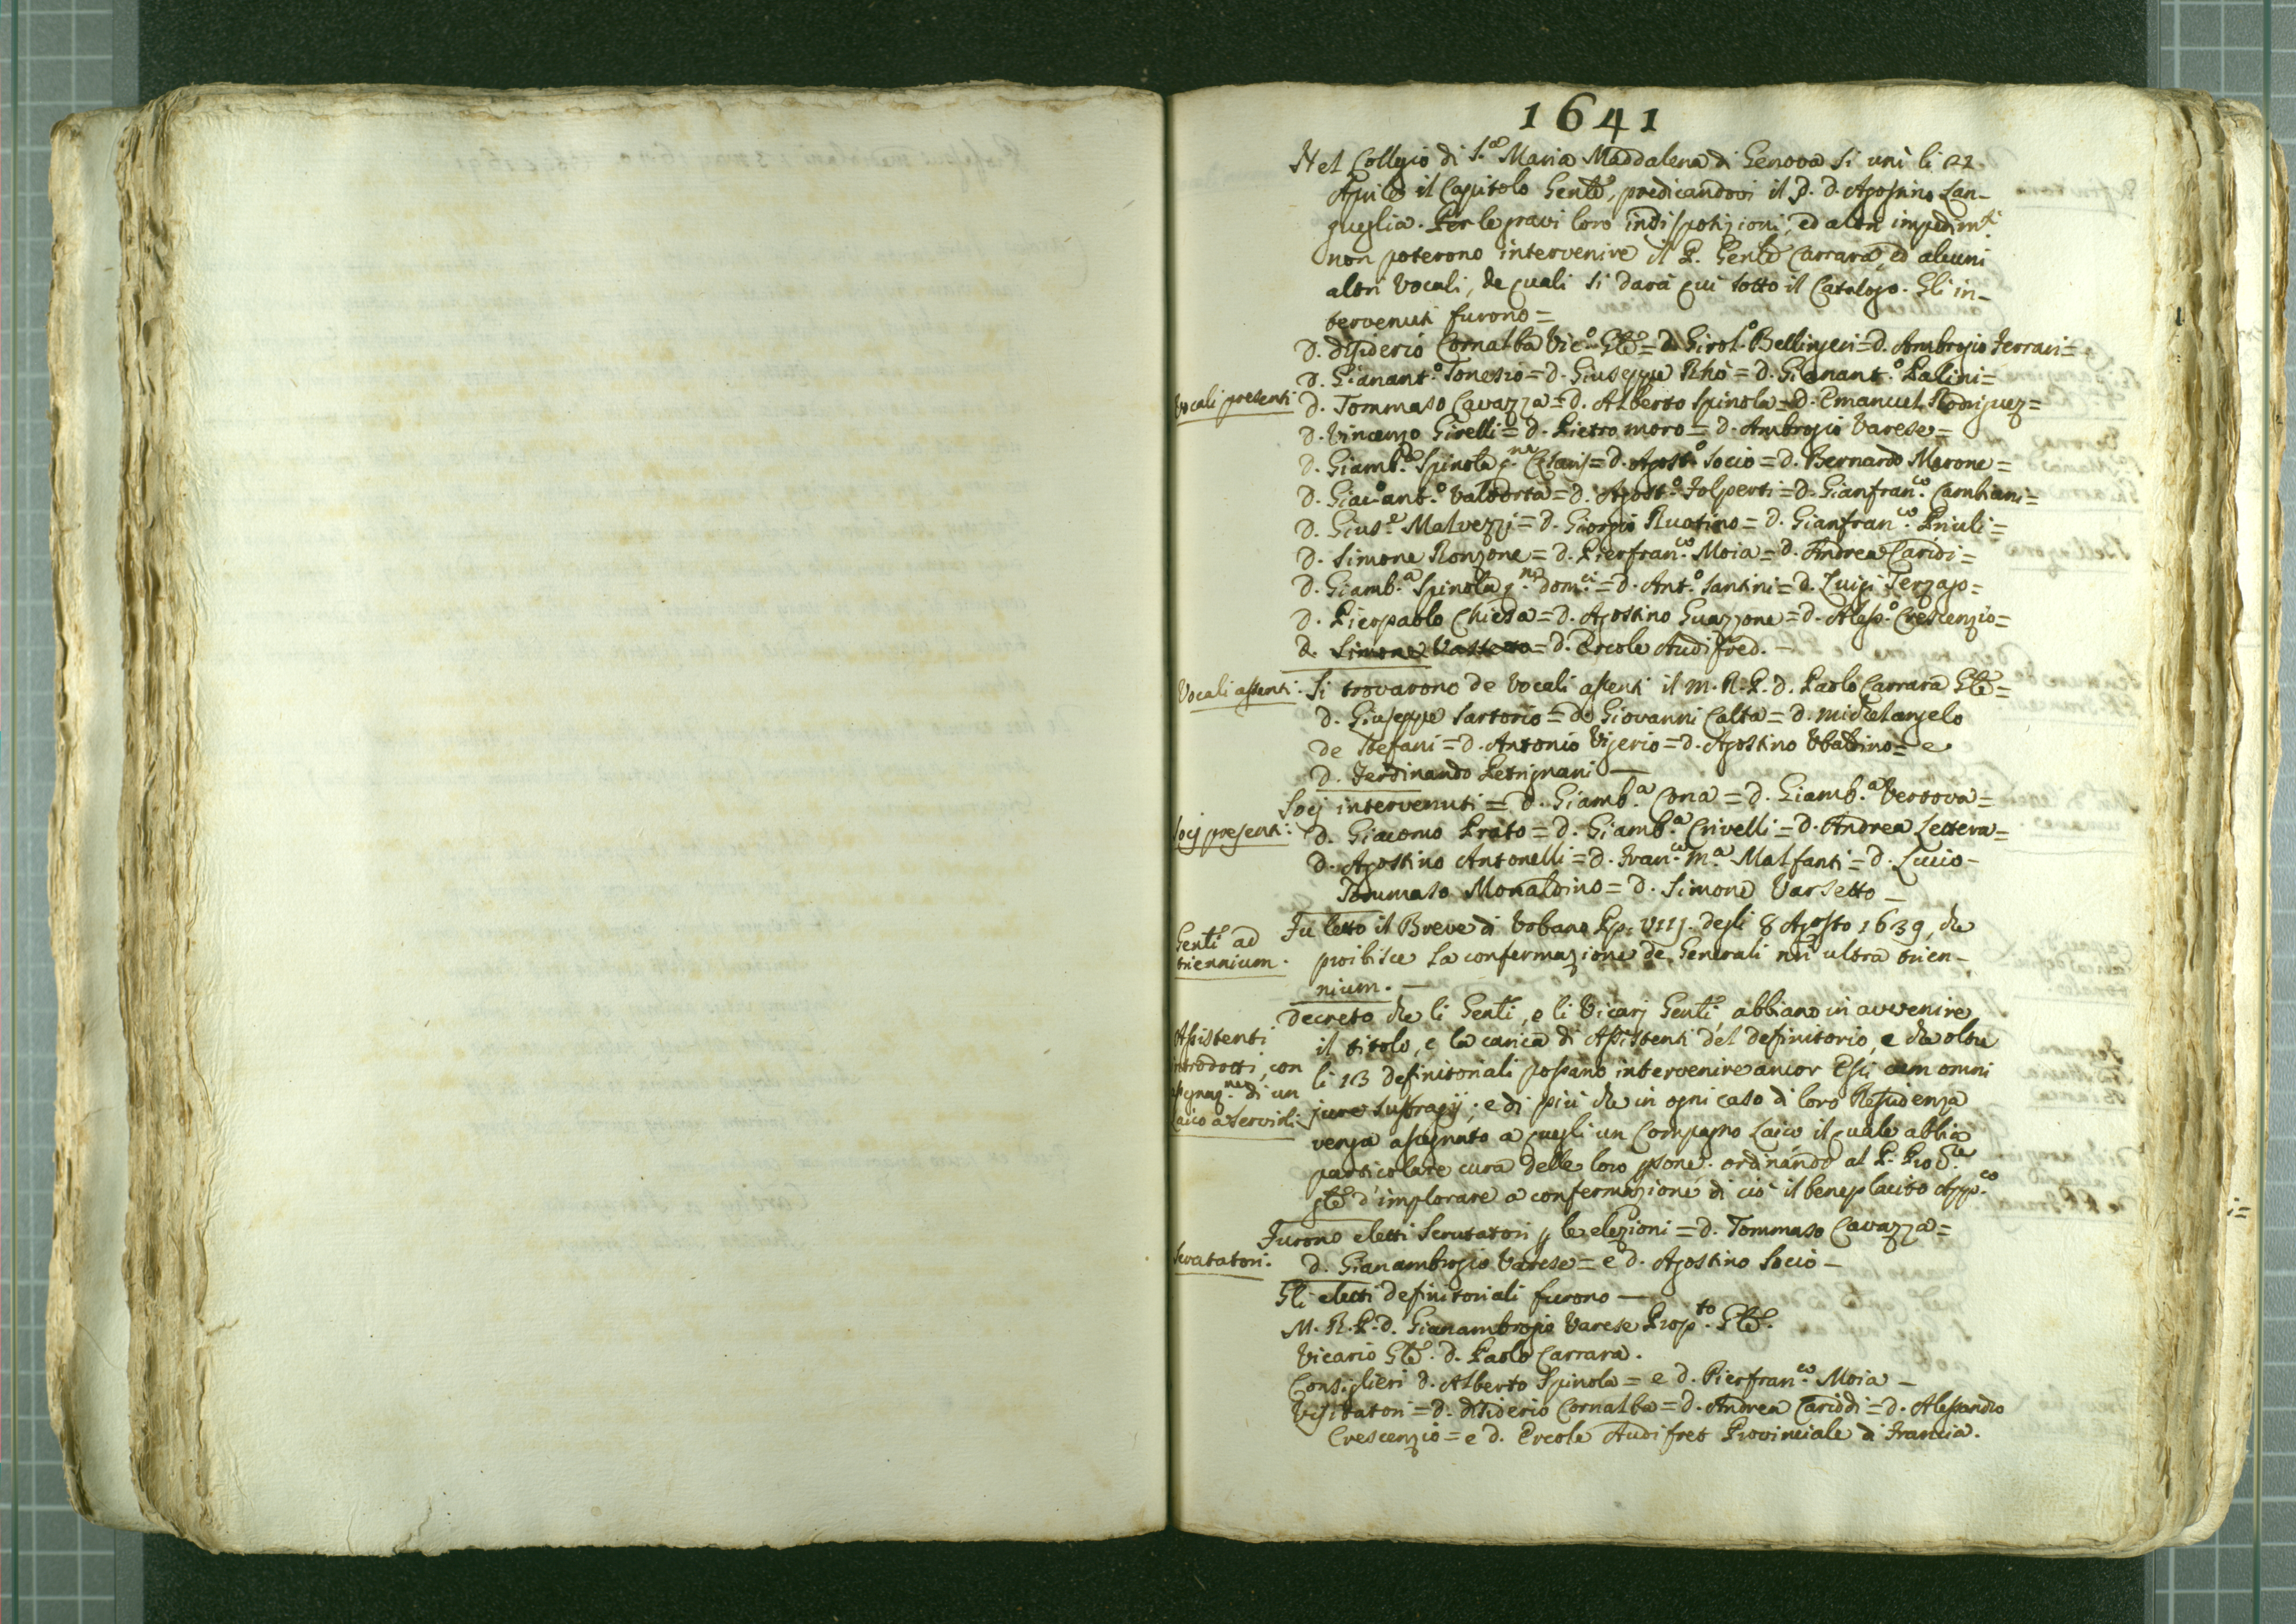 1641
Nel Collegio di S.ta Maria Maddalena di Genova si unì li 21
Aprile il Capitolo Genle, predicandovi il P. D. Agostino Lan-
gueglia. Per le gravi loro indisposizioni, ed altri impedimti
non poterono intervenire il P. Genle Carrara, ed alcuni
altri Vocali, de quali si darà qui sotto il Catalogo. Gli in-
tervenuti furono =
D. Disiderio Cornalba Vic.o Gle = D. Girol.o Bellingeri = D. Ambrogio Ferrari =
Vocali presenti
D. Gianant.o Tonesio = D. Giuseppe Rhò = D. Gianant.o Palini =
D. Tommaso Cavazza = D. Alberto Spinola = D. Emanuel Rodriguez =
D. Vincenzo Girelli = D. Pietro Moro = D. Ambrogio Varese =
D. Giamb.a Spinola q.m Cesaris = D. Agost.o Socio = D. Bernardo Merone =
D. Giac.o ant.o Valtorta = D. Agost.o Folperti = D. Gianfran.co Cambiani =
D. Gius.e Malvezzi = D. Giorgio Ruotino = D. Gianfran.co Priuli =
D. Simone Ronzone = D. Pierfran.co Moia = D. Andrea Caridi =
D. Giamb.a Spinola q.m Dom.ci = D. Ant.o Santini = D. Luigi Terzago =
D. Pierpaolo Chiesa = D. Agostino Guazzone = D. Aless.o Crescenzio =
D. Simone Vassetto = D. Ercole Audifred. -
Vocali assenti.
Si trovarono de Vocali assenti il M. R. P. D. Paolo Carrara Gle =
D. Giuseppe Sartorio = D. Giovanni Calta = D. Michelangelo
de Stefani = D. Antonio Vigerio = D. Agostino Ubaldino = e
D. Ferdinando Petrignani —
Socj presenti:
Socj intervenuti = D. Giamb.a Cona = D. Giamb.a Vertova =
D. Giacomo Prato = D. Giamb.a Crivelli = D. Andrea Lettera =
D. Agostino Antonelli = D. Fran.co M.a Malfanti = D. Lucio -
Tommaso Monaldino = D. Simone Varsetto —
Genli ad
triennium.
Fu letto il Breve di Urbano Pp. VIIJ. degli 8 Agosto 1639, che
proibisce la confermazione de Generali nisi ultra trien-
nium. —
Assistenti
introdotti, con
assegnaz.ne di un
Laico a servirli
Decreto che li Genli, e li Vicarj Genli, abbiano in avvenire
il titolo, e la carica di Assistenti del Definitorio, e che oltre
li 13 definitoriali possano intervenire ancor Essi cum omni
jure suffragij; e di più che in ogni caso di loro Residenza
venga assegnato a quegli un Compagno Laico il quale abbia
particolare cura delle loro psone. ordinando al P. Proc.re
gle d'implorare a confermazione di ciò il beneplacito App.co
Scrutatori.
Furono eletti Scrutatori p le elezioni = D. Tommaso Cavazza =
D. Gianambrogio Varese = e D. Agostino Socio —
Gli eletti definitoriali furono —
M. R. P. D. Gianambrogio Varese Prop.to Gle.
Vicario Gle. D. Paolo Carrara.
Consiglieri D. Alberto Spinola = e D. Pierfran.co Moia —
Visitatori = D. Disiderio Cornalba = D. Andrea Cariddi = D. Alessandro
Crescenzio = e D. Ercole Audifret Provinciale di Francia.